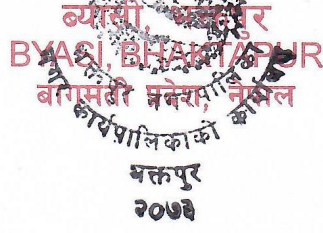 ब्यासी, भक्तपुर
BYASI, BHAKTAPUR
बागमती प्रदेश, नेपाल
नगर कार्यपालिकाको कार्यालय
भक्तपुर
२०७३